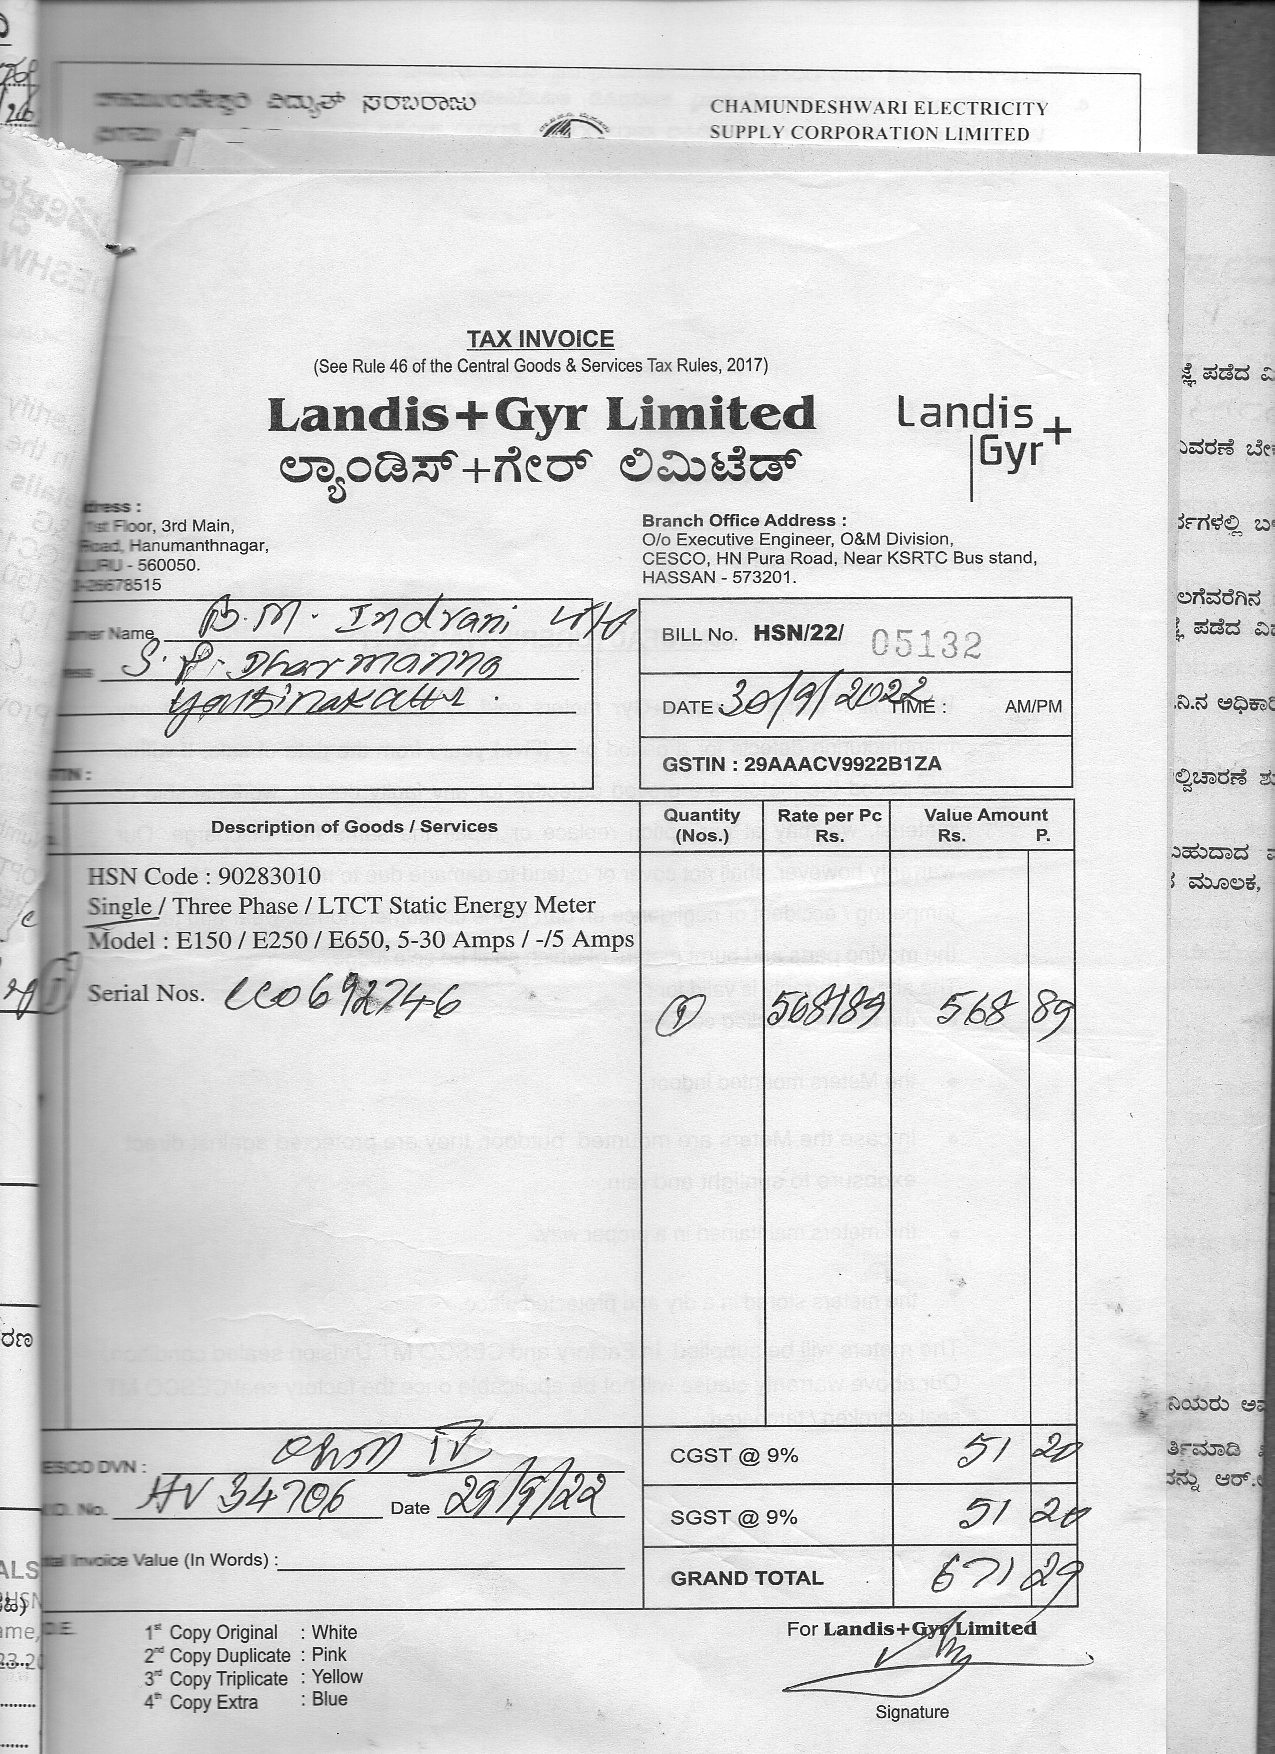 ವಿದ್ಯುತ್ ಸರಬರಾಜು
CHAMUNDESHWARI ELECTRICITY
SUPPLY CORPORATION LIMITED
TAX INVOICE
(See Rule 46 of the Central Goods & Services Tax Rules, 2017)
Landis+Gyr Limited
ಲ್ಯಾಂಡಿಸ್+ಗೇರ್ ಲಿಮಿಟೆಡ್
Landis
Gyr+
dress :
1st Floor, 3rd Main,
Road, Hanumanthnagar,
- 560050.
26678515
Branch Office Address :
O/o Executive Engineer, O&M Division,
CESCO, HN Pura Road, Near KSRTC Bus stand,
HASSAN - 573201.
mer Name B.M. Indrani W/o
ess S.P. Dharmanna
GSTIN :
BILL No. HSN/22/ 05132
DATE : 30/9/2022 TIME : AM/PM
GSTIN : 29AAACV9922B1ZA
Description of Goods / Services Quantity (Nos.) Rate per Pc Rs. Value Amount Rs. P.
HSN Code : 90283010
Single / Three Phase / LTCT Static Energy Meter
Model : E150 / E250 / E650, 5-30 Amps / -/5 Amps
Serial Nos. CC0692746 1 568/89 568 89
ESCO DVN :
CGST @ 9% 51 20
No. HV 34706 Date 29/9/22
SGST @ 9% 51 20
Invoice Value (In Words) :
GRAND TOTAL 671 29
1st Copy Original : White
2nd Copy Duplicate : Pink
3rd Copy Triplicate : Yellow
4th Copy Extra : Blue
For Landis+Gyr Limited
Signature
ಪಡೆದ
ವರಣೆ ಬೇ
ರ್ಗಗಳಲ್ಲಿ
ಲಗೆವರೆಗಿನ
ಪಡೆದ
ನಿ.ನ ಅಧಿಕಾರಿ
ಲ್ವಿಚಾರಣೆ
ಬಹುದಾದ
ಮೂಲಕ,
ನಿಯರು
ರ್ತಿಮಾಡಿ
ತನ್ನು ಆರ್.